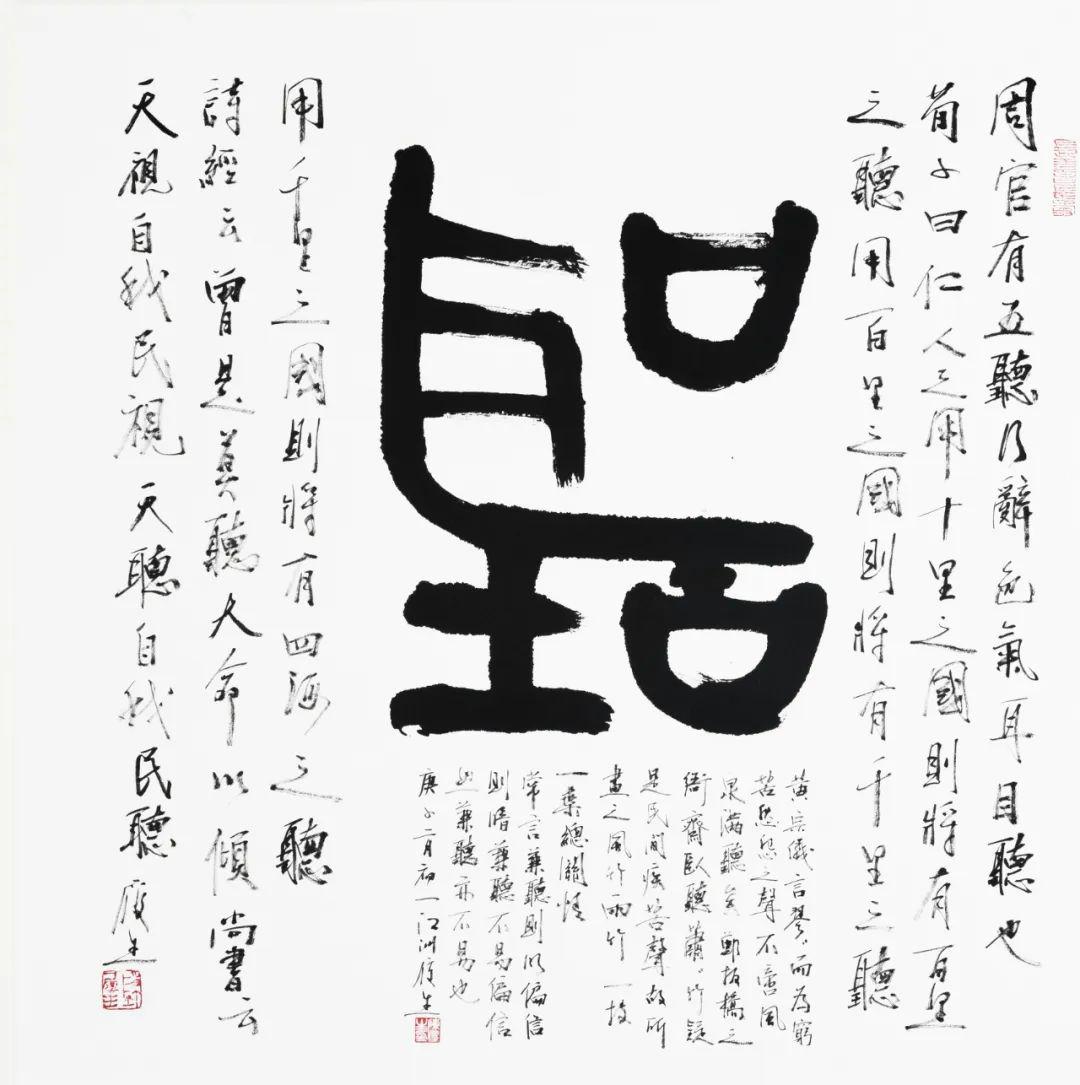 周官有五聽乃辭色氣耳目聽也
荀子曰仁人之用十里之國則將有百里
之聽用百里之國則將有千里之聽
用千里之國則將有四海之聽
詩經云曾是莫聽大命以傾尚書云
天視自我民視天聽自我民聽
黃宗儀言琴々而為窮
苦愁怨之聲不啻風
泉滿聽矣鄭板橋之
衙齋臥聽蕭々竹疑
是民間疾苦聲故所
畫之風竹雨竹一枝
一葉總關情
常言兼聽則明偏信
則暗兼聽不易偏信
兼聽亦不易也
庚子二月初一江洲